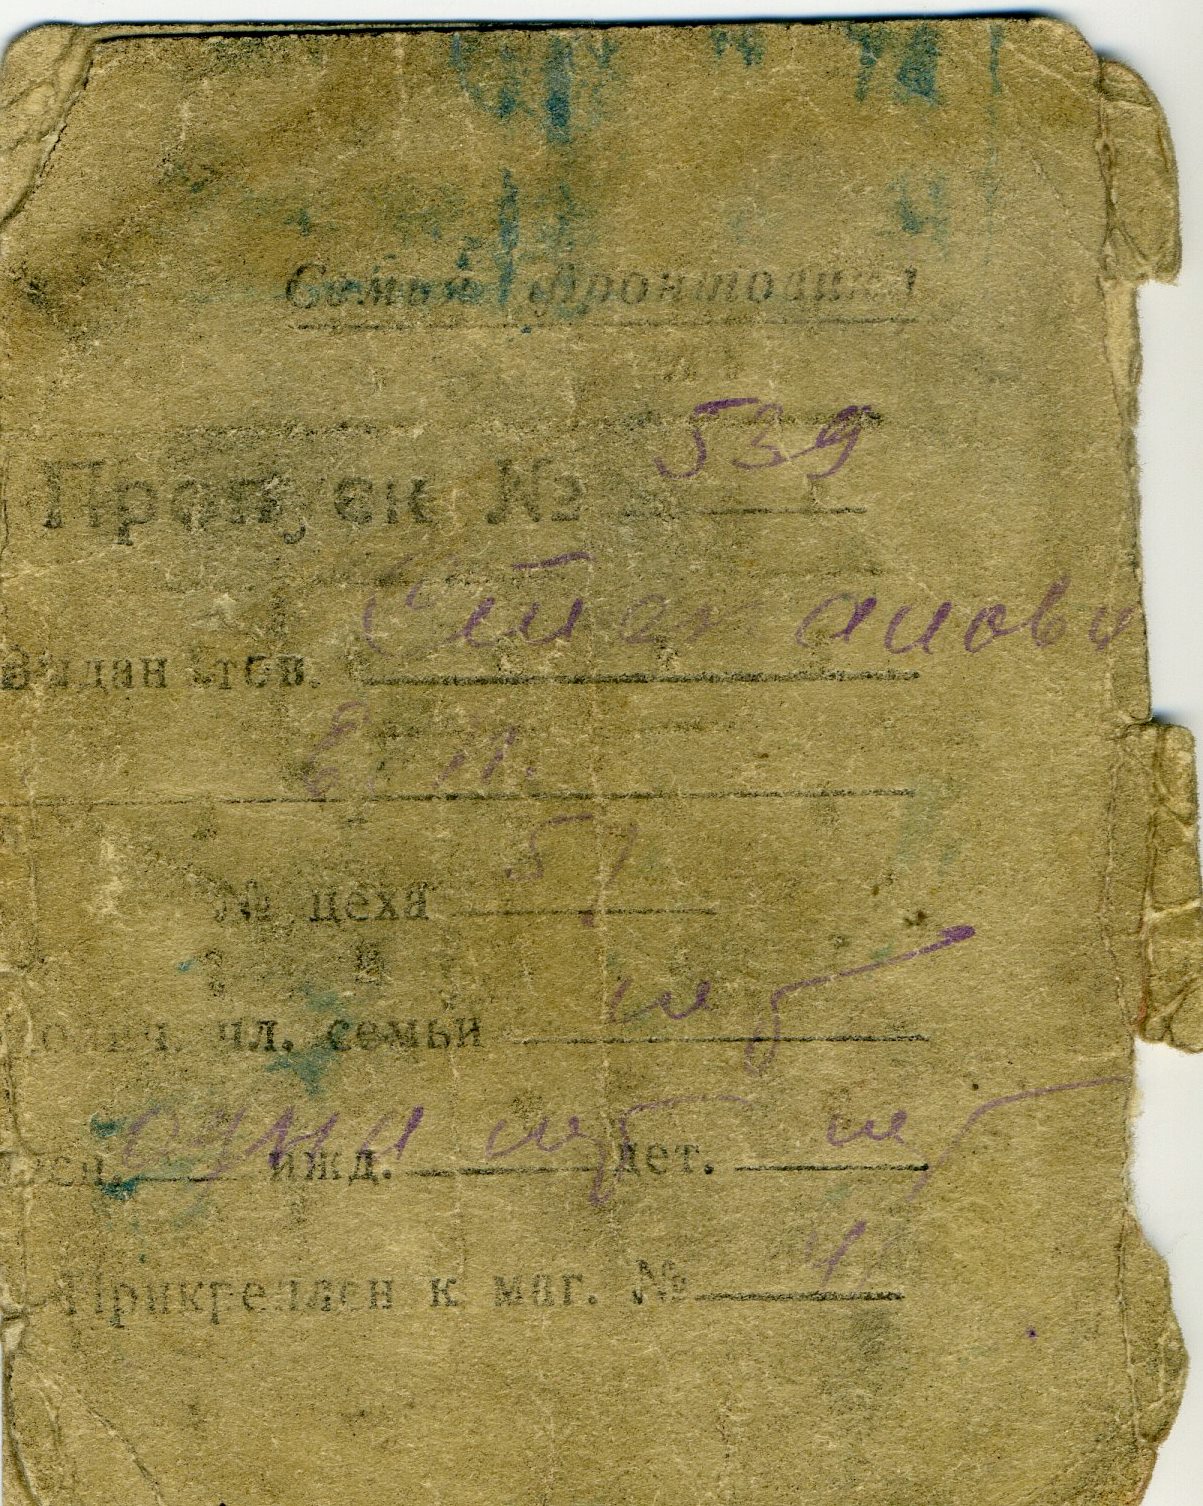 Семья фронтовика
Пропуск № 539
Выдан тов. Степановой
Е. М.
№ цеха 57
Колич. чл. семьи нет
один ижд. нет дет. нет
Прикреплен к маг. № 4